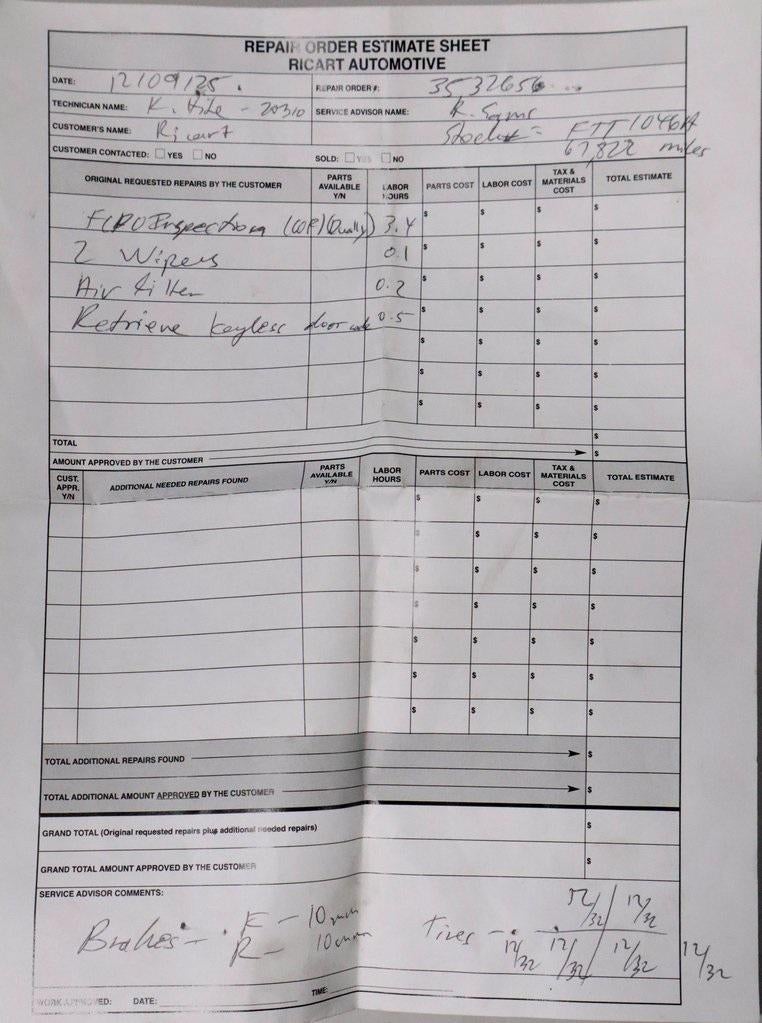 REPAIR ORDER ESTIMATE SHEET
RICART AUTOMOTIVE
DATE: 12/09/25 REPAIR ORDER #: 3532656
TECHNICIAN NAME: K. - 20310 SERVICE ADVISOR NAME: R. Syms
CUSTOMER'S NAME: Ricart Stock# = FTT1046A
67,822 miles
CUSTOMER CONTACTED: ☐ YES ☐ NO SOLD: ☐ YES ☐ NO
ORIGINAL REQUESTED REPAIRS BY THE CUSTOMER PARTS AVAILABLE Y/N LABOR HOURS PARTS COST LABOR COST TAX & MATERIALS COST TOTAL ESTIMATE
Inspection (Dually) 3.4 $ $ $ $
2 Wipers 0.1 $ $ $ $
Air filter 0.2 $ $ $ $
Retrieve keyless door code 0.5 $ $ $ $
$ $ $ $
$ $ $ $
$ $ $ $
TOTAL $
AMOUNT APPROVED BY THE CUSTOMER $
CUST. APPR. Y/N ADDITIONAL NEEDED REPAIRS FOUND PARTS AVAILABLE Y/N LABOR HOURS PARTS COST LABOR COST TAX & MATERIALS COST TOTAL ESTIMATE
$ $ $ $
$ $ $ $
$ $ $ $
$ $ $ $
$ $ $ $
$ $ $ $
$ $ $ $
TOTAL ADDITIONAL REPAIRS FOUND $
TOTAL ADDITIONAL AMOUNT APPROVED BY THE CUSTOMER $
GRAND TOTAL (Original requested repairs plus additional needed repairs) $
GRAND TOTAL AMOUNT APPROVED BY THE CUSTOMER $
SERVICE ADVISOR COMMENTS:
12/32 12/32
Brakes - F - 10mm Tires -
R - 10mm 12/32 12/32 12/32 12/32
WORK APPROVED: DATE: TIME: